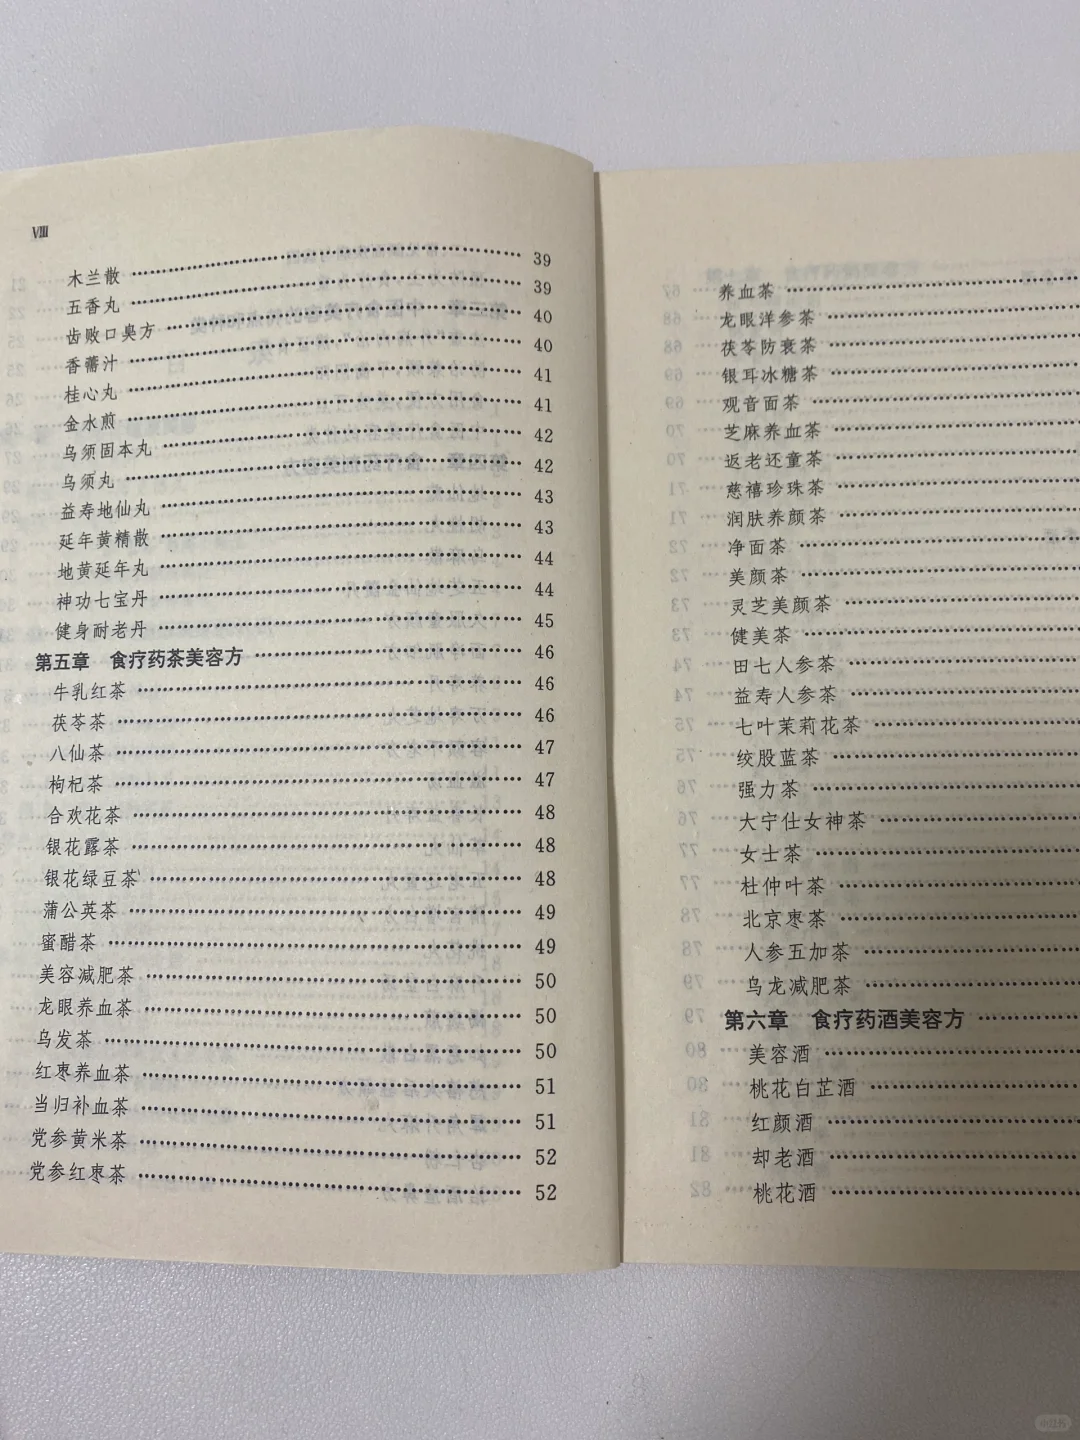 VIII
木兰散 39
五香丸 39
齿败口臭方 40
香薷汁 40
桂心丸 41
金水煎 41
乌须固本丸 42
乌须丸 42
益寿地仙丸 43
延年黄精散 43
地黄延年丸 44
神功七宝丹 44
健身耐老丹 45
第五章 食疗药茶美容方 46
牛乳红茶 46
茯苓茶 46
八仙茶 47
枸杞茶 47
合欢花茶 48
银花露茶 48
银花绿豆茶 48
蒲公英茶 49
蜜醋茶 49
美容减肥茶 50
龙眼养血茶 50
乌发茶 50
红枣养血茶 51
当归补血茶 51
党参黄米茶 52
党参红枣茶 52
养血茶
龙眼洋参茶
茯苓防衰茶
银耳冰糖茶
观音面茶
芝麻养血茶
返老还童茶
慈禧珍珠茶
润肤养颜茶
净面茶
美颜茶
灵芝美颜茶
健美茶
田七人参茶
益寿人参茶
七叶茉莉花茶
绞股蓝茶
强力茶
大宁仕女神茶
女士茶
杜仲叶茶
北京枣茶
人参五加茶
乌龙减肥茶
第六章 食疗药酒美容方
美容酒
桃花白芷酒
红颜酒
却老酒
桃花酒
小红书